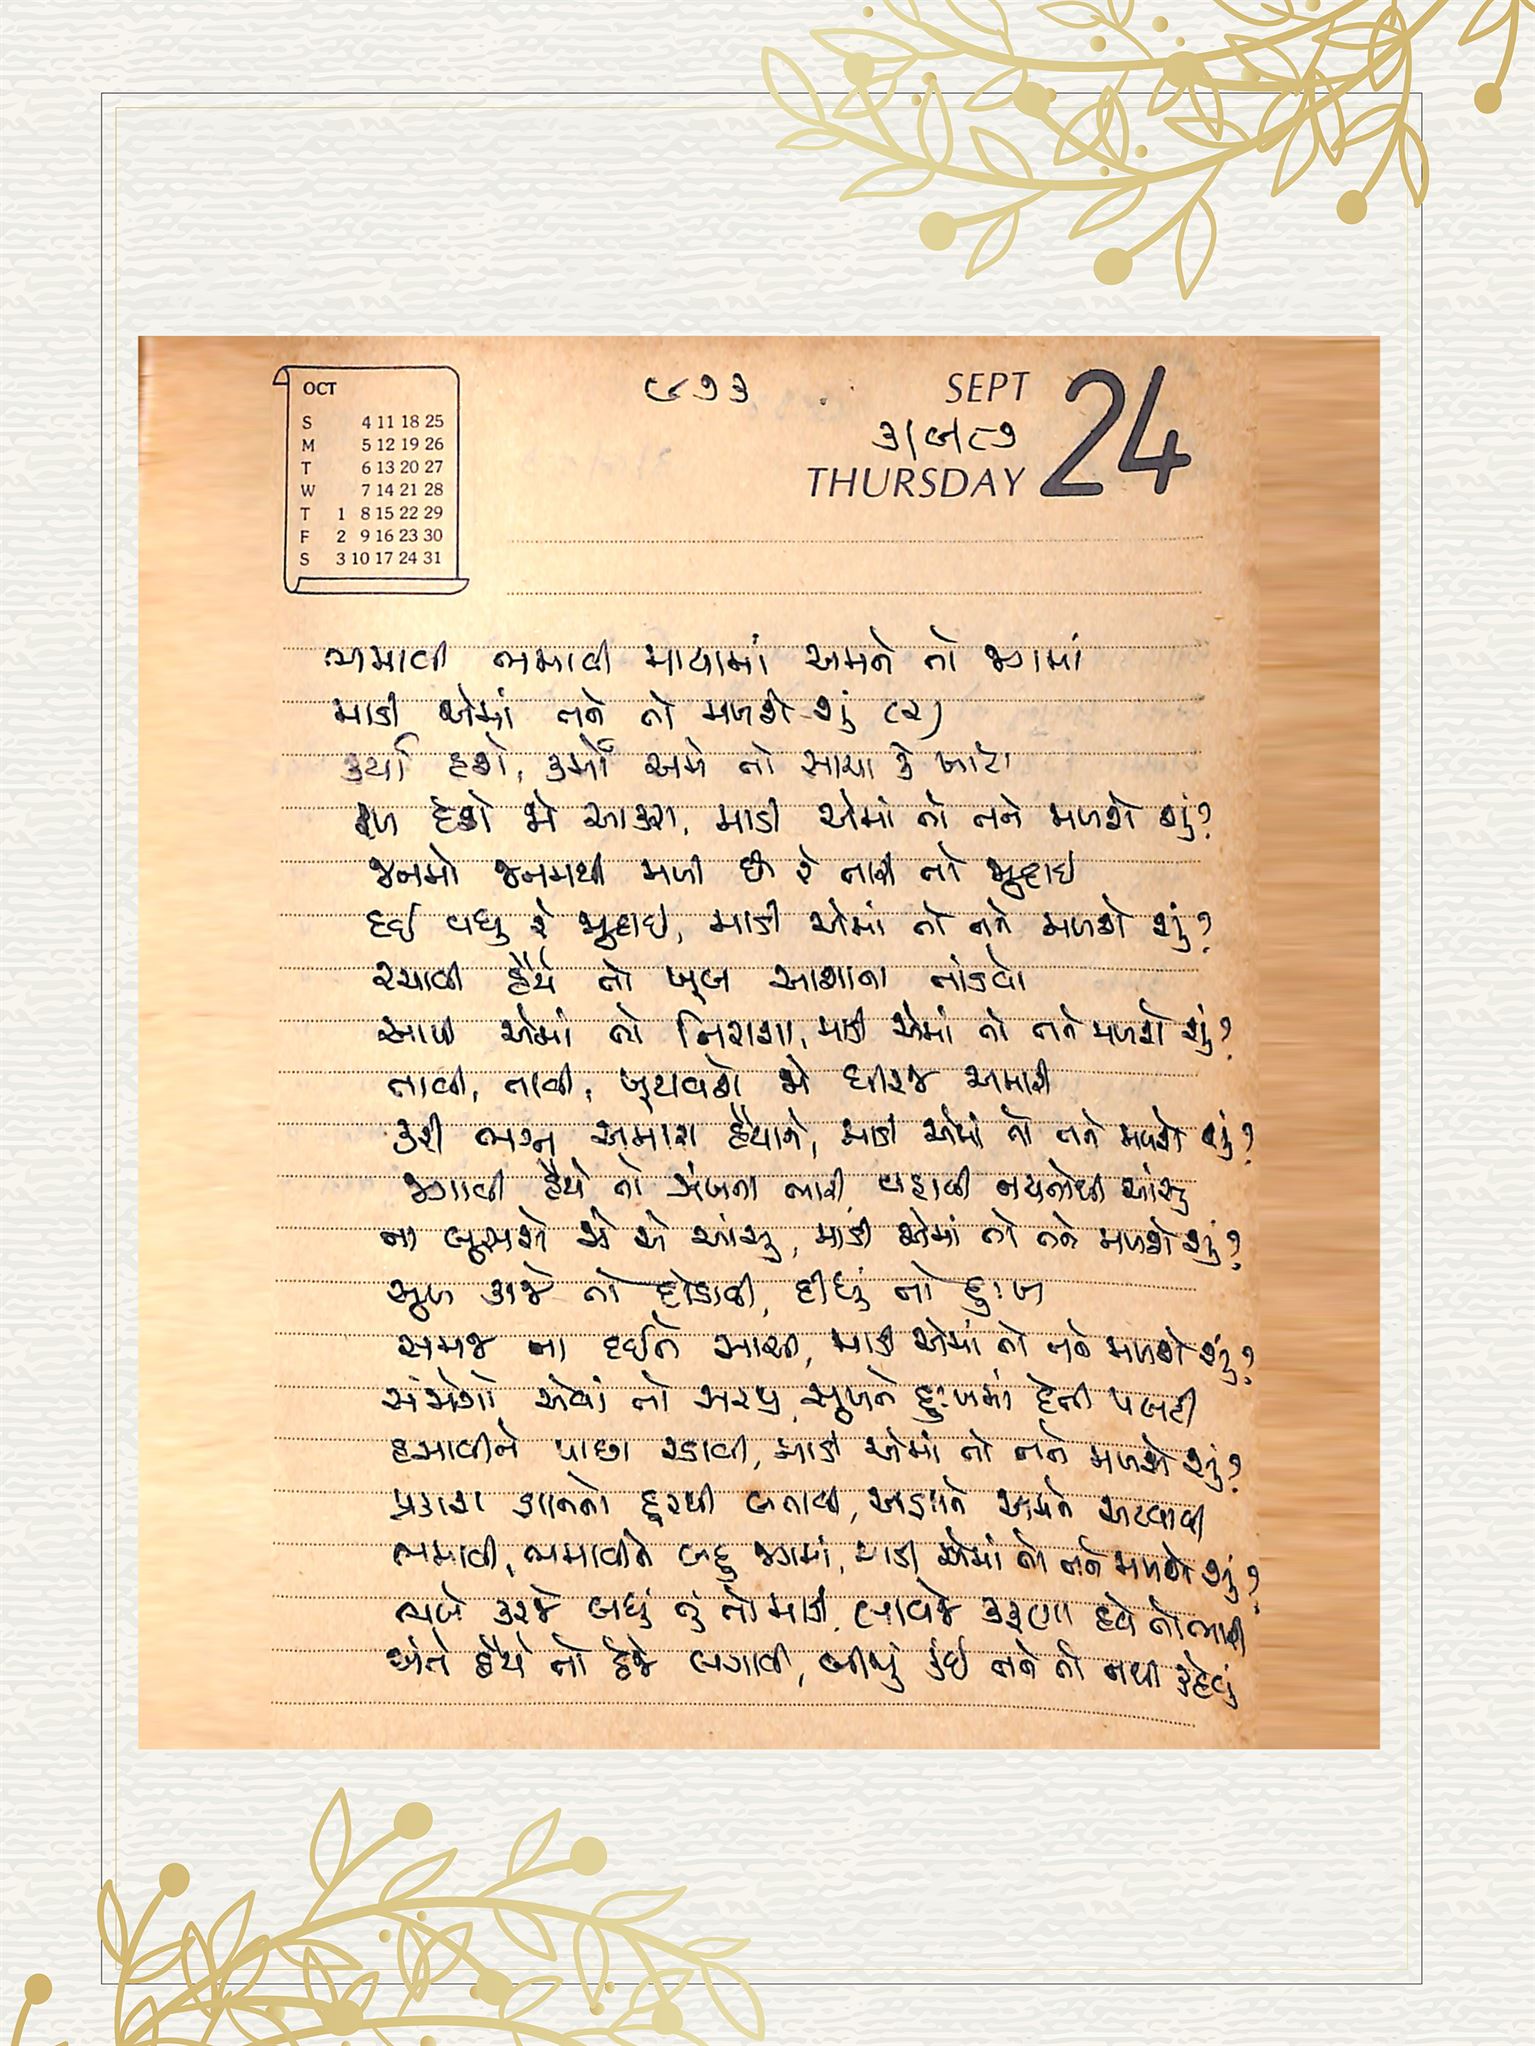 OCT
S 4 11 18 25
M 5 12 19 26
T 6 13 20 27
W 7 14 21 28
T 1 8 15 22 29
F 2 9 16 23 30
S 3 10 17 24 31
૯૭૩
SEPT 24
૩/૯/૮૭
THURSDAY
ભમાવી ભમાવી માયામાં અમને તો જગમાં
માડી એમાં તને તો મળશે શું (૨)
કર્યા હશે, કર્મો અમે તો સાચા કે ખોટા
ફળ દેશો જો આકરા, માડી એમાં તો તને મળશે શું?
જનમો જનમથી મળી છે રે તારી તો જુદાઈ
દઈ વધુ રે જુદાઈ, માડી એમાં તો તને મળશે શું?
રચાવી હૈયે તો ખૂબ આશાના તાંડવો
આપી એમાં તો નિરાશા, માડી એમાં તો તને મળશે શું?
તાવી, તાવી, ખૂટવશે જો ધીરજ અમારી
કરી ભગ્ન અમારા હૈયાને, માડી એમાં તો તને મળશે શું?
જગાવી હૈયે તો ઝંખના ભારી, વહાવી નયનોથી આંસુ
ના લૂછશે જો એ આંસુ, માડી એમાં તો તને મળશે શું?
સુખ કાજે તો દોડાવી, દીધું તો દુઃખ
સમજ ના દઈને સાચી, માડી એમાં તો તને મળશે શું?
સંજોગો એવાં તો સરજી, સુખને દુઃખમાં દેતી પલટી
હસાવીને પાછા રડાવી, માડી એમાં તો તને મળશે શું?
પ્રકાશ જ્ઞાનનો દૂરથી બતાવી, અજ્ઞાને અમને અટવાવી
ભમાવી, ભમાવીને બહુ જગમાં, માડી એમાં તો તને મળશે શું?
ભલે કરજે બધું તું તો માડી, લાવજે કરુણા હવે તો ભારી
અંતે હૈયે તો દેજે લગાવી, બીજું કંઈ તને તો નથી કહેવું